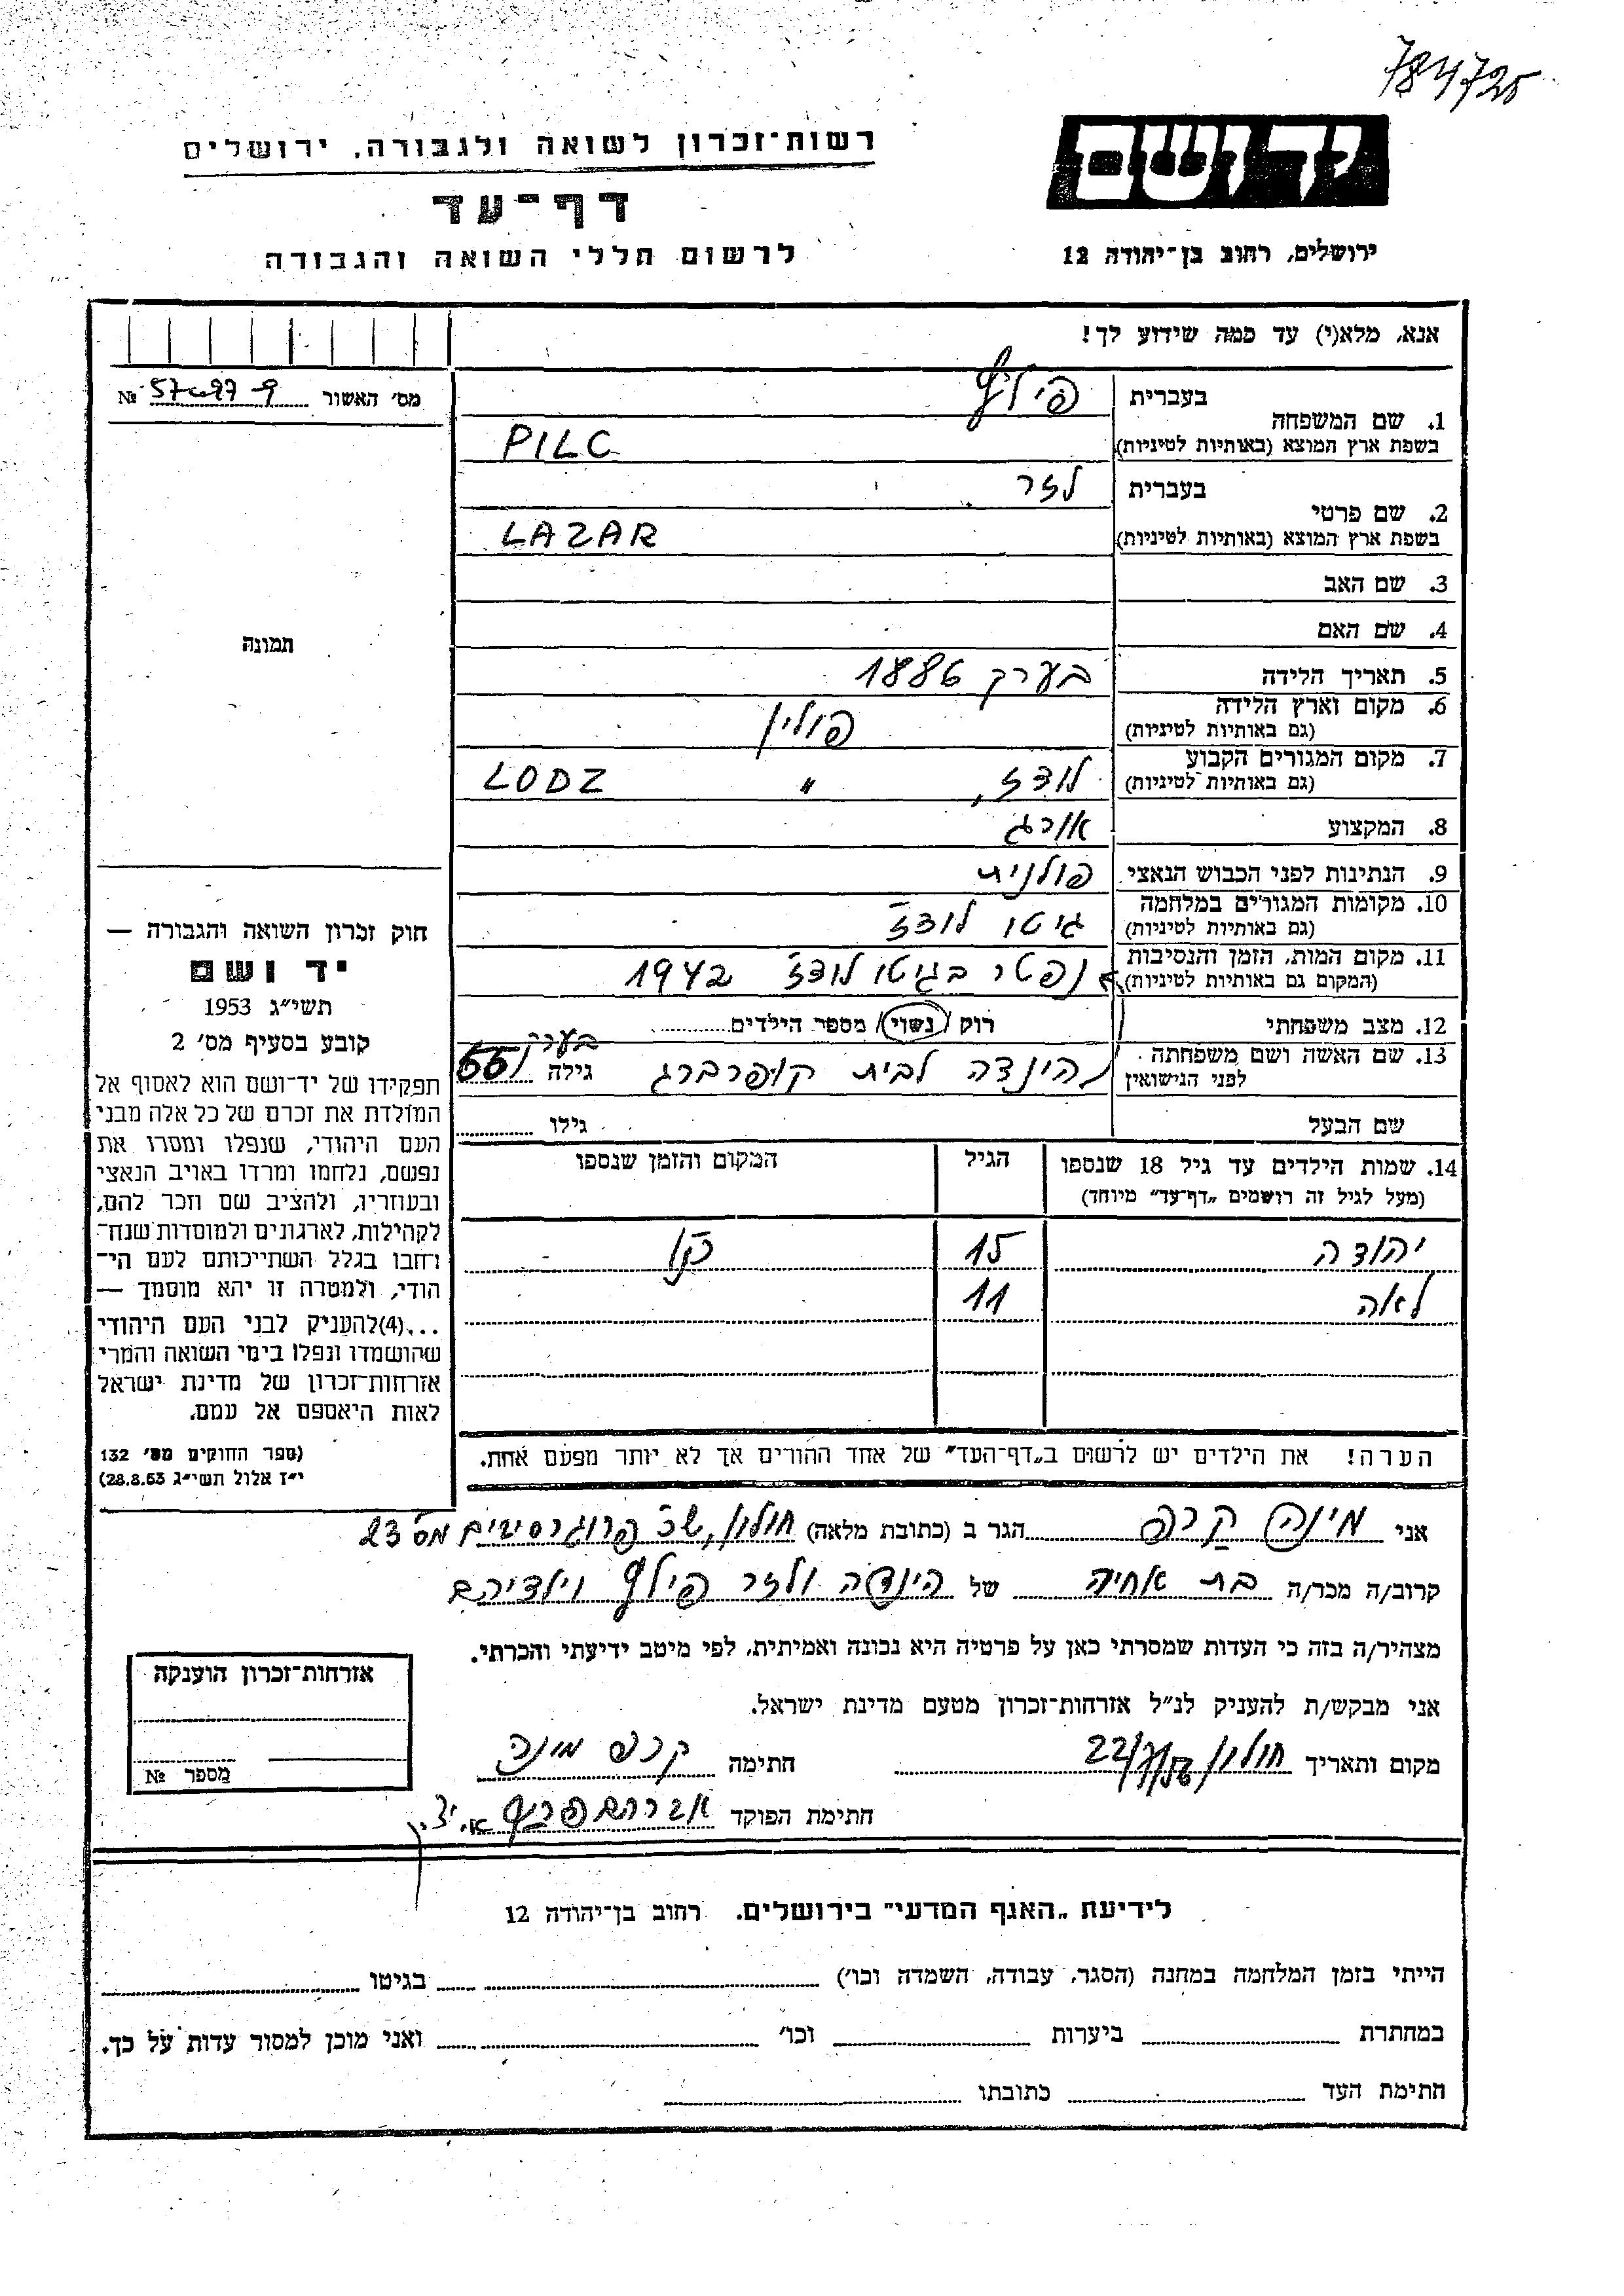 784725
יד ושם
ירושלים, רחוב בן־יהודה 12
רשות־זכרון לשואה ולגבורה, ירושלים
דף־עד
לרשום חללי השואה והגבורה
אנא, מלא(י) עד כמה שידוע לך!
מס׳ האשור № 
בעברית פילץ
1. שם המשפחה
בשפת ארץ המוצא (באותיות לטיניות) PILC
בעברית לזר
2. שם פרטי
בשפת ארץ המוצא (באותיות לטיניות) LAZAR
3. שם האב
4. שם האם
5. תאריך הלידה בערך 1886
6. מקום וארץ הלידה פולין
(גם באותיות לטיניות)
7. מקום המגורים הקבוע
(גם באותיות לטיניות) לודז, " LODZ
8. המקצוע אורג
9. הנתינות לפני הכבוש הנאצי פולנית
10. מקומות המגורים במלחמה
(גם באותיות לטיניות) גיטו לודז
11. מקום המות, הזמן והנסיבות
(המקום גם באותיות לטיניות) נפטר בגיטו לודז 1942
12. מצב משפחתי רוק / נשוי / מספר הילדים
13. שם האשה ושם משפחתה
לפני הנישואין הינדה לבית קופרברג גילה בערך 55
שם הבעל גילו
14. שמות הילדים עד גיל 18 שנספו הגיל המקום והזמן שנספו
(מעל לגיל זה רושמים „דף־עד" מיוחד)
יהודה 15 כנ"ל
לאה 11
הערה! את הילדים יש לרשום ב„דף־העד" של אחד ההורים אך לא יותר מפעם אחת.
תמונה
חוק זכרון השואה והגבורה —
יד ושם
תשי״ג 1953
קובע בסעיף מס׳ 2
תפקידו של יד־ושם הוא לאסוף אל
המולדת את זכרם של כל אלה מבני
העם היהודי, שנפלו ומסרו את
נפשם, נלחמו ומרדו באויב הנאצי
ובעוזריו, ולהציב שם וזכר להם,
לקהילות, לארגונים ולמוסדות שנח־
רחבו בגלל השתייכותם לעם הי־
הודי, ולמטרה זו יהא מוסמך —
...(4)להעניק לבני העם היהודי
שהושמדו ונפלו בימי השואה והמרי
אזרחות־זכרון של מדינת ישראל
לאות היאספם אל עמם.
(ספר החוקים מס׳ 132
י״ז אלול תשי״ג 28.8.53)
אני מינה קרפ הגר ב (כתובת מלאה) חולון, שכ' פרוגרסיבים מס' 23
קרוב/ה מכר/ה בת אחיה של הינדה ולזר פילץ וילדיהם
מצהיר/ה בזה כי העדות שמסרתי כאן על פרטיה היא נכונה ואמיתית, לפי מיטב ידיעתי והכרתי.
אני מבקש/ת להעניק לנ״ל אזרחות־זכרון מטעם מדינת ישראל.
מקום ותאריך חולון חתימה קרפ מינה
חתימת הפוקד אברהם
אזרחות־זכרון הוענקה
מספר №
לידיעת „האגף המדעי" בירושלים. רחוב בן־יהודה 12
הייתי בזמן המלחמה במחנה (הסגר, עבודה, השמדה וכו׳) בגיטו
במחתרת ביערות וכו׳ ואני מוכן למסור עדות על כך.
חתימת העד כתובתו